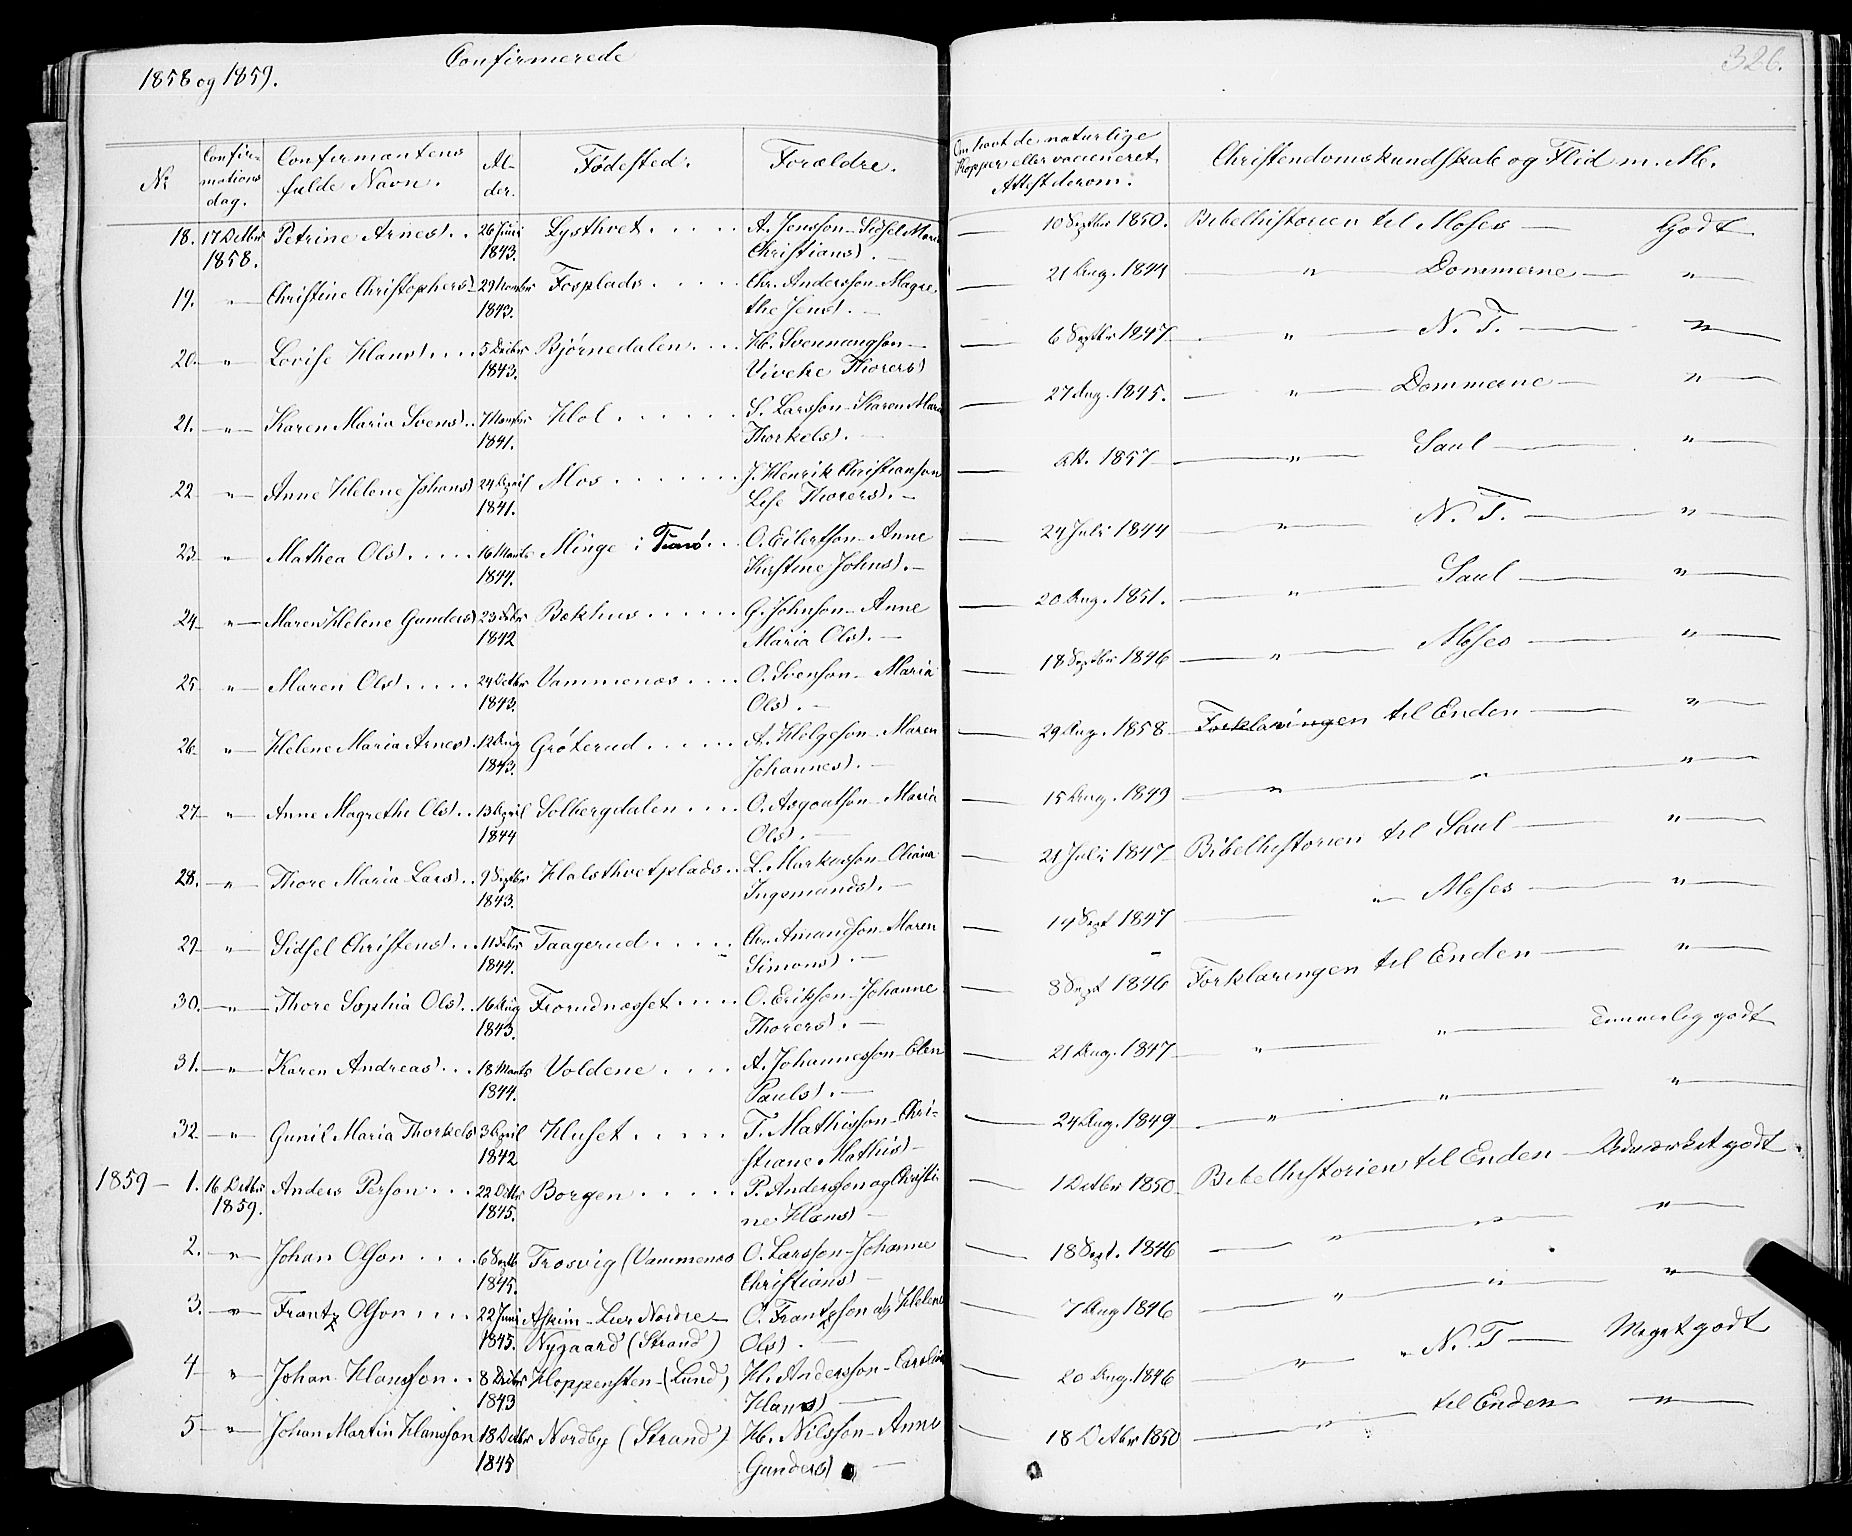 1858 og 1859.
Confirmerede
326.
Nr
Confir-
mations
dag.
Confirmantens
fulde Navn.
Al-
der.
Fødested.
Forældre.
Om havt de naturlige
Kopper eller vaccineret
Attest derom.
Christendomskundskab og Flid m. M.
18. 17 Octbr 1858. Petrine Arnesd. 26 Juni 1843. Lysthvet A. Jensson - Sidsel Maria Christiansd. — 10 Septbr 1850. Bibelhistorien til Moses — Godt
19. " Christine Christophersd 29 Novembr 1843. Fosplads Chr. Andersson - Magre the Jensd. — 21 Aug. 1844 " Dommerne — "
20. " Lovise Hansd. 5 Decbr 1843. Bjørnedalen H. Svenningson — Viveke Thorersd — 6 Septbr 1847 " N. T. — "
21. " Karen Maria Svensd. 7 Novembr 1841. Hol S. Larsson - Karen Maria Thorkelsd. — 27 Aug. 1845. " Dommerne — "
22 " Anne Helene Johansd 24 April 1841. Mos J. Henrik Christianson Lise Thorersd. — Oct. 1857 " Saul — "
23. " Mathea Olsd. 16 Marts 1844. Minge i Tunø O. Eilertson - Anne Kirstine Johnsd. — 24 Juli 1844 " N. T. — "
24 " Maren Helene Gundersd 23 Febr 1842 Bækhus G. Johnson - Anne Maria Olsd. — 20 Aug. 1851. " Saul — "
25 " Maren Olsd. 24 Octbr 1843. Vammenæs O. Svenson - Maria Olsd. — 18 Septbr 1846 " Moses — "
26 " Helene Maria Arnesd. 12 Aug 1843. Grøterud A. Helgeson - Maren Johannesd. — 29 Aug. 1858 Forklaringen til Enden — "
27 " Anne Magrethe Olsd. 13 April 1844 Solbergdalen O. Asgoutson - Maria Olsd. — 15 Aug. 1849 " " "
28. " Thore Maria Larsd. 9 Septbr 1843. Halsthvetplads L. Markusson - Oliana Ingemundsd. — 21 Juli 1847 Bibelhistorien til Saul — "
29 " Sidsel Christensd. 11 Febr 1844. Taagerud Chr. Amundson - Maren Simonsd. — 14 Sept 1847 " Moses — "
30. " Thore Sophia Olsd. 16 Aug 1843. Frorudnæsset O. Erikson - Johanne Thorersd. — 8 Sept 1846 Forklaringen til Enden — "
31. " Karen Andreasd. 18 Marts 1844. Voldene A. Johannesson - Elen Paulsd. — 21 Aug. 1847 " " Temmelig godt
32 " Gunil Maria Thorkelsd 3 April 1842 Huset T. Mathisson - Chri- stiane Mathisd — 24 Aug. 1849 " " "
1859 — 1. 16 Octbr 1859. Anders Person 22 Octbr 1845. Borgen P. Andersson og Christi ne Hansd — 1 Octbr 1850 Bibelhistorien til Enden — Udmærket godt
2. " Johan Olson 6 Septbr 1845. Trosvig (Vammenæs O. Larsson - Johanne Christiansd — 18 Sept. 1846 " " "
3. " Frantz Olson 22 Juni 1845. Askim - Lier Nordre — Nygaard (Strand) O. Frantzson og Helene Olsd. — 7 Aug 1846 " " "
4 " Johan Hansson 8 Decbr 1843 Hoppensten (Lund) H. Andersson - Caroline Hansd — 20 Aug. 1846 " " N. T — Meget godt
5 " Johan Martin Hansson 18 Octbr 1845 Nordby (Strand) H. Nilsson - Anne Gundersd — 18 Octbr 1850 " til Enden "